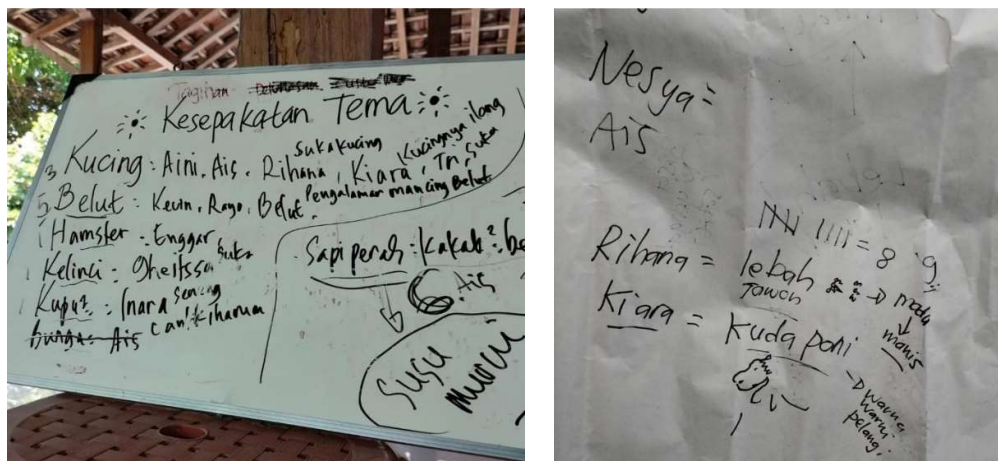 Tagihan
Kesepakatan Tema
3 Kucing : Aini, Ais, Rihana, Kiara, Tri, suka
suka kucing
Kucingnya ilang
5 Belut : Kevin, Rayo, Belut.
Pengalaman mancing Belut
1 Hamster : Enggar
1 Kelinci : Gheitssa suka
1 Kupu² : Inara senang
cantik harum
Bunga : Ais
Sapi perah : kakak² be
Ais
Susu
murni
Nesya =
Ais
= 8 9
Rihana = lebah → madu
Tawon
manis
Kiara = Kuda poni
→ warna
warni
pelangi